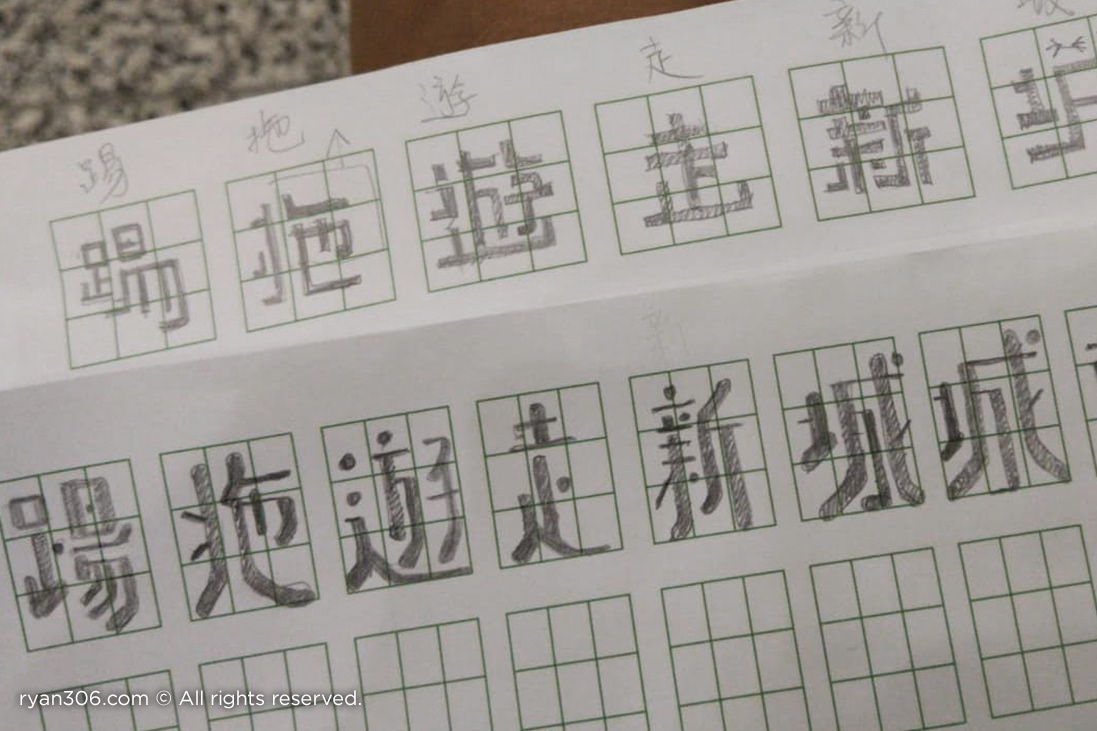 踢 拖 遊 走 新
踢 拖 遊 走 新
新
踢 拖 遊 走 新 城 城
ryan306.com © All rights reserved.